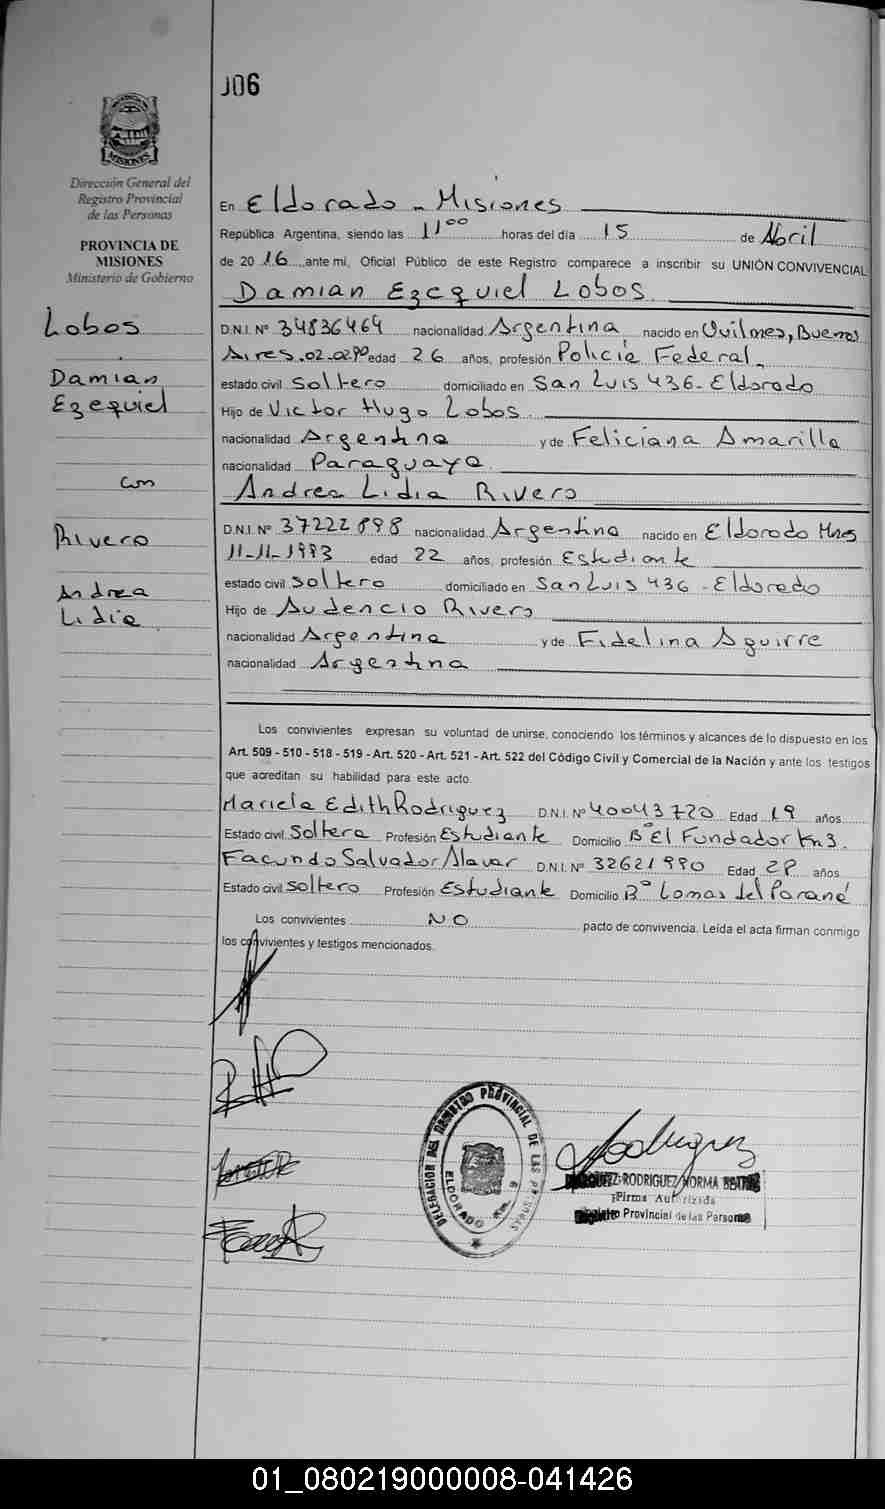 106
PROVINCIA DE
MISIONES
Dirección General del
Registro Provincial
de las Personas
PROVINCIA DE
MISIONES
Ministerio de Gobierno
Lobos
Damian
Ezequiel
con
Rivero
Andrea
Lidia
En Eldorado - Misiones
República Argentina, siendo las 11 00 horas del día 15 de Abril
de 20 16 ante mí, Oficial Público de este Registro comparece a inscribir su UNIÓN CONVIVENCIAL
Damian Ezequiel Lobos
D.N.I. Nº 34836464 nacionalidad Argentina nacido en Quilmes, Buenos
Aires.02-02-90 edad 26 años, profesión Policía Federal
estado civil Soltero domiciliado en San Luis 436 - Eldorado
Hijo de Victor Hugo Lobos
nacionalidad Argentina y de Feliciana Amarilla
nacionalidad Paraguaya
Andrea Lidia Rivero
D.N.I. Nº 37222898 nacionalidad Argentina nacido en Eldorado Mnes
11-11-1993 edad 22 años, profesión Estudiante
estado civil Soltero domiciliado en San Luis 436 - Eldorado
Hijo de Audencio Rivero
nacionalidad Argentina y de Fidelina Aguirre
nacionalidad Argentina
Los convivientes expresan su voluntad de unirse, conociendo los términos y alcances de lo dispuesto en los
Art. 509 - 510 - 518 - 519 - Art. 520 - Art. 521 - Art. 522 del Código Civil y Comercial de la Nación y ante los testigos
que acreditan su habilidad para este acto.
Mariela Edith Rodriguez D.N.I. Nº 40043720 Edad 19 años
Estado civil Soltera Profesión Estudiante Domicilio Bº El Fundador Km3.
Facundo Salvador Alavar D.N.I. Nº 32621990 Edad 28 años
Estado civil Soltero Profesión Estudiante Domicilio Bº Lomas del Paraná
Los convivientes NO pacto de convivencia. Leída el acta firman conmigo
los convivientes y testigos mencionados.
DELEGACION DEL REGISTRO PROVINCIAL DE LAS PERSONAS
ELDORADO KM. 9
RODRIGUEZ NORMA BEATRIZ
Firma Autorizada
Registro Provincial de las Personas
01_080219000008-041426